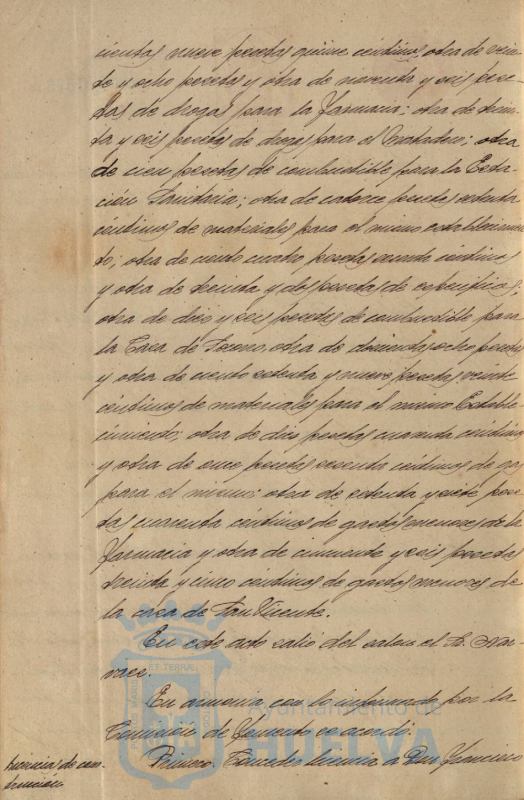 cientas nueve pesetas quince céntimos, otra de vein-
te y ocho pesetas y otra de noventa y seis pese-
tas de drogas para la farmacia; otra de trein-
ta y seis pesetas de drogas para el Matadero; otra
de cien pesetas de combustible para la Esta-
ción Sanitaria; otra de catorce pesetas setenta
céntimos de materiales para el mismo establecimien-
to; otra de ciento cuatro pesetas céntimos
y otra de treinta y dos pesetas de específicos;
otra de diez y seis pesetas de combustible para
la Casa de Socorro, otra de doscientas ocho pesetas
y otra de ciento setenta y nueve pesetas veinte
céntimos de materiales para el mismo Estable-
cimiento, otra de diez pesetas cuarenta céntimos
y otra de once pesetas sesenta céntimos de gas
para el mismo; otra de setenta y siete pese-
tas cuarenta céntimos de gastos menores de la
farmacia y otra de cincuenta y seis pesetas
treinta y cinco céntimos de gastos menores de
la casa de San Vicente.
En este acto salió del salón el Sr. Nar-
vaez.
En armonía con lo informado por la
Comisión de Fomento se acordó:
Primero. Conceder licencia a Don Francisco
Licencias de cons-
trucción.
ET TERRAE
Ayuntamiento de
HUELVA